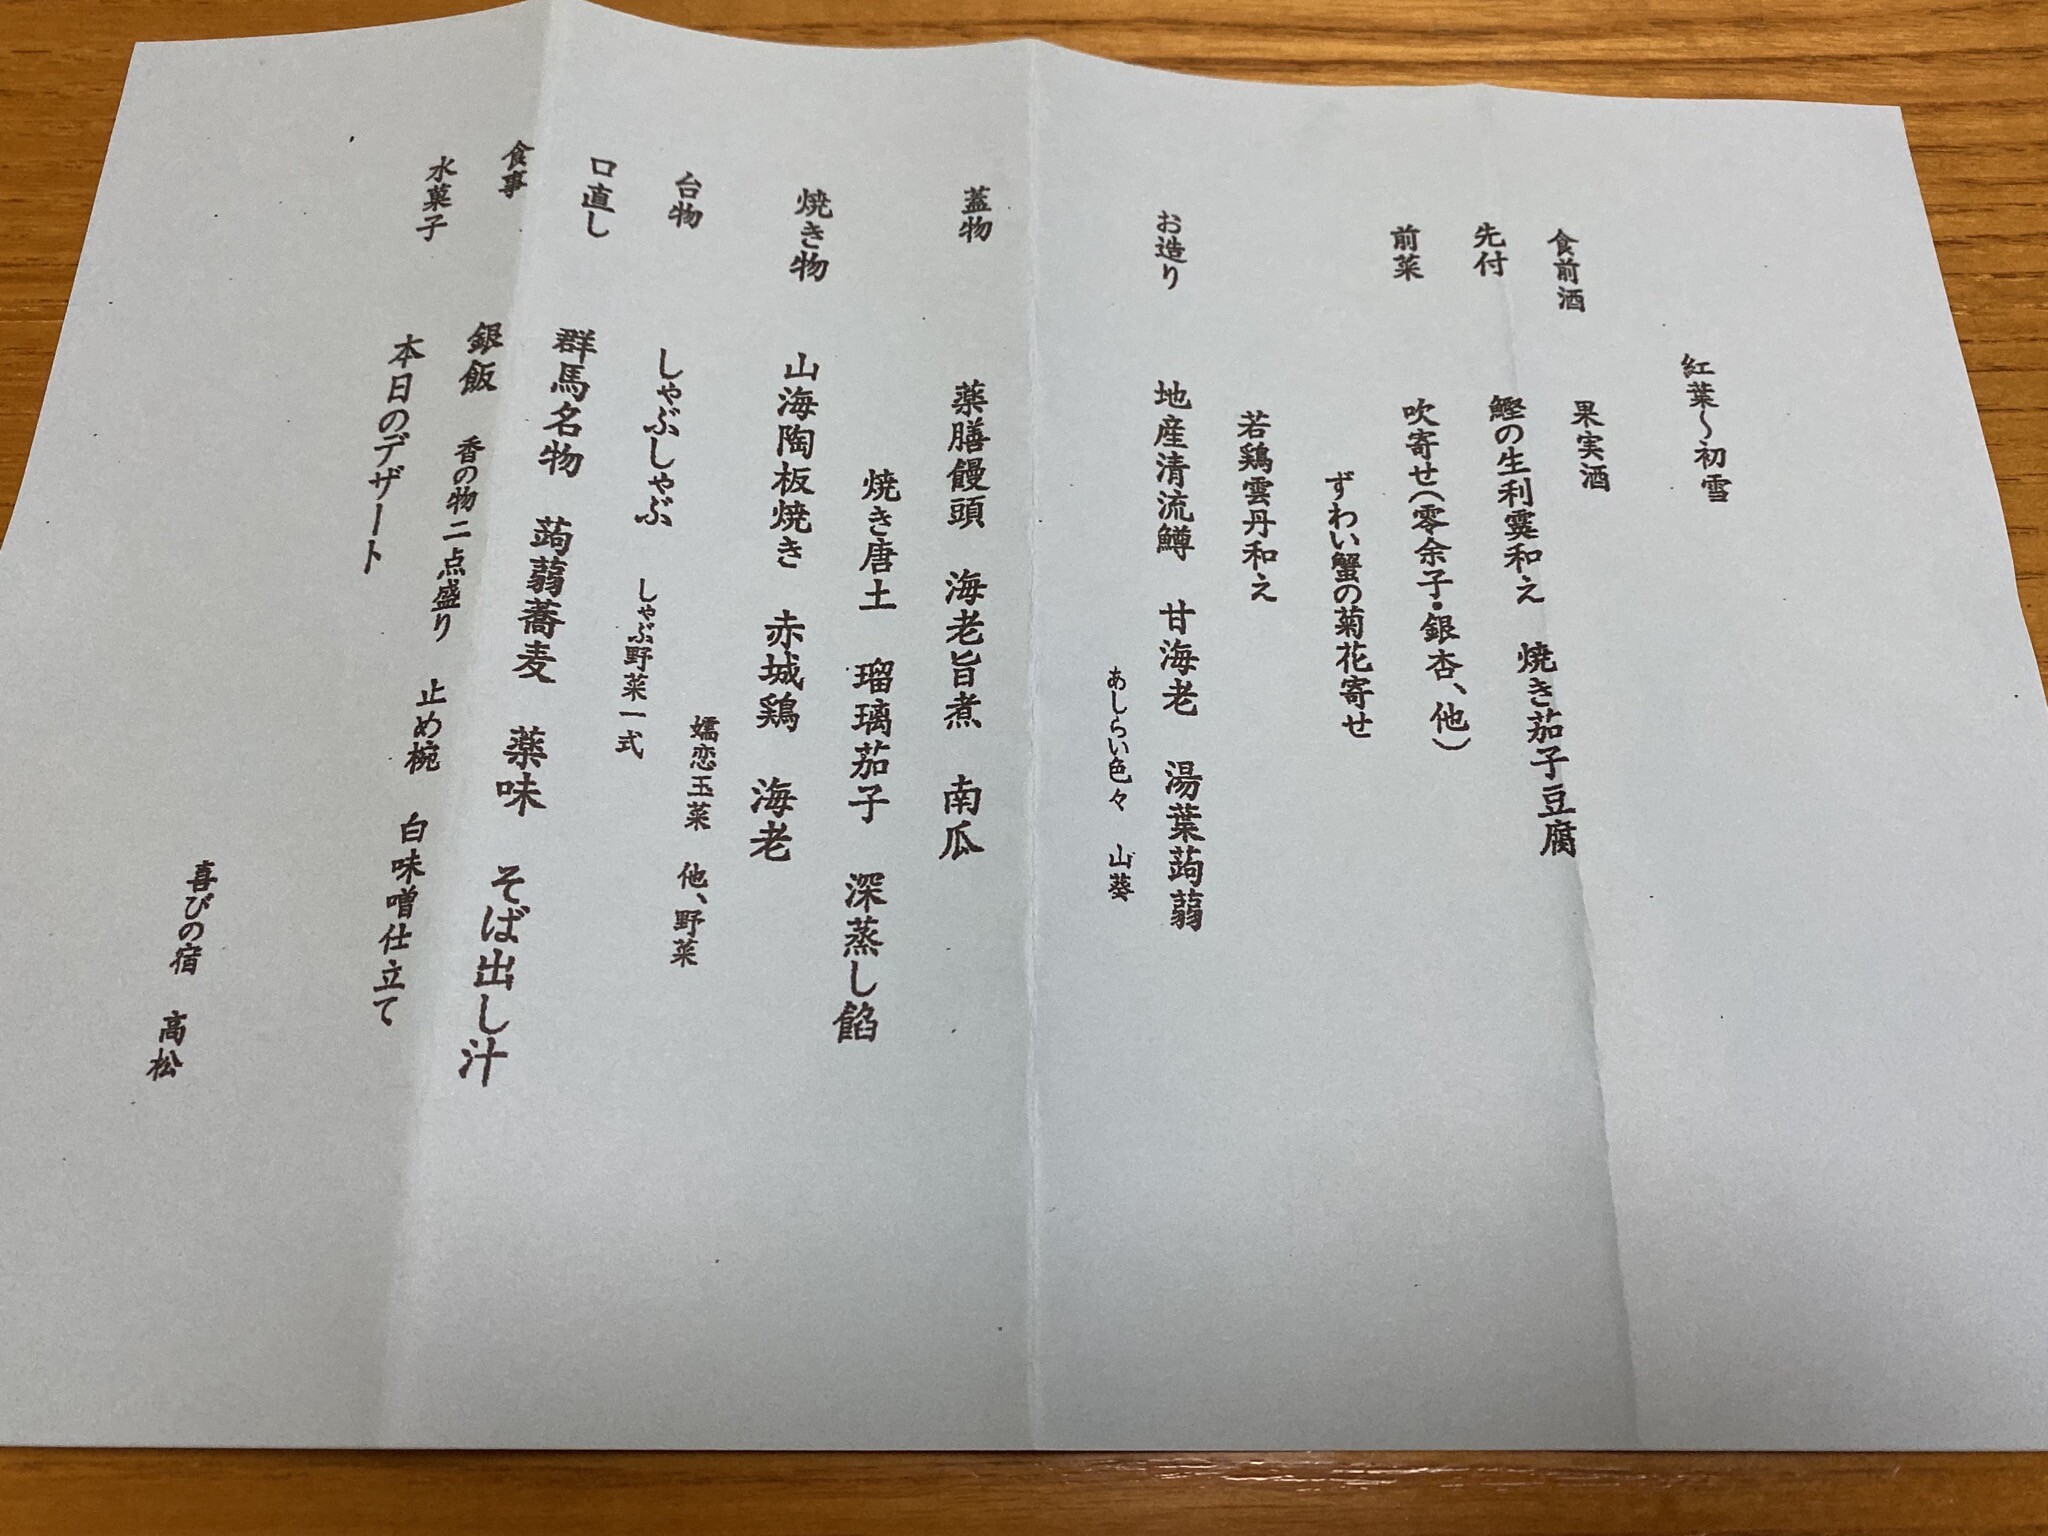 紅葉～初雪
食前酒 果実酒
先付 鰹の生利霙和え 焼き茄子豆腐
前菜 吹寄せ(零余子・銀杏、他)
ずわい蟹の菊花寄せ
若鶏雲丹和え
お造り 地産清流鱒 甘海老 湯葉蒟蒻
あしらい色々 山葵
蓋物 薬膳饅頭 海老旨煮 南瓜
焼き唐土 瑠璃茄子 深蒸し餡
焼き物 山海陶板焼き 赤城鶏 海老
嬬恋玉菜 他、野菜
台物 しゃぶしゃぶ しゃぶ野菜一式
口直し 群馬名物 蒟蒻蕎麦 薬味 そば出し汁
食事 銀飯 香の物二点盛り 止め椀 白味噌仕立て
水菓子 本日のデザート
喜びの宿 高松